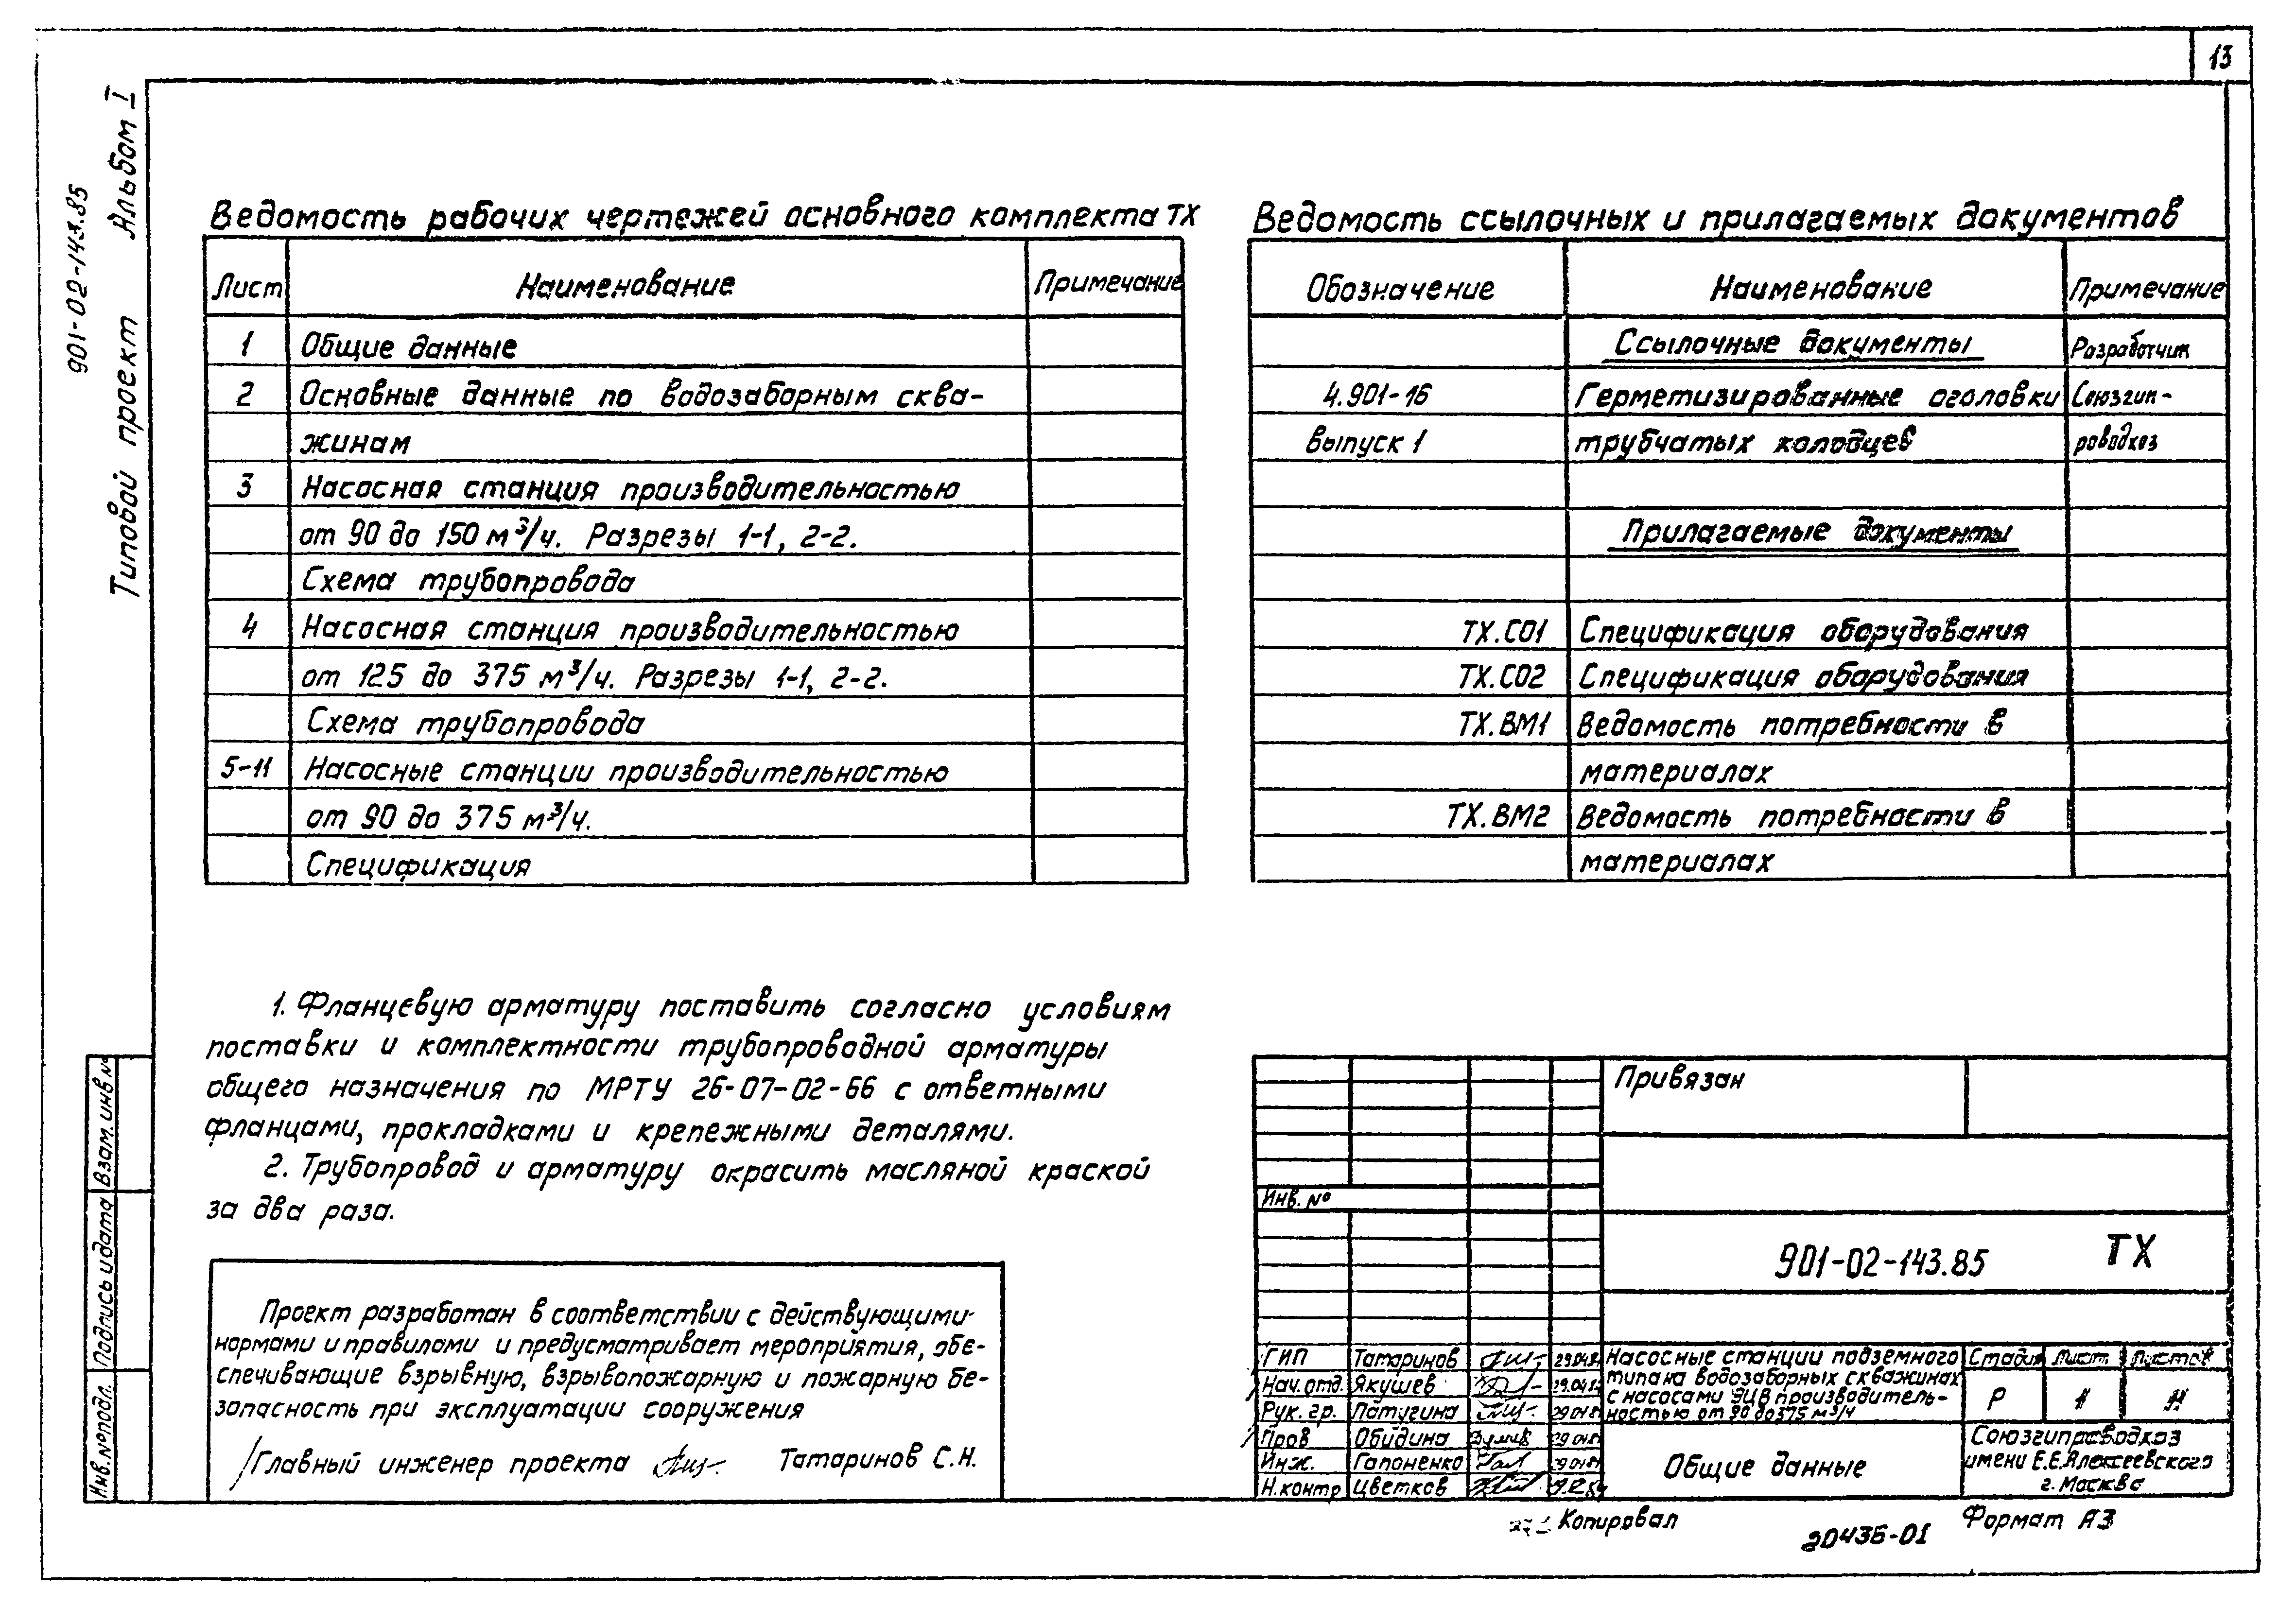 13
901-02-143.85
Типовой проект Альбом I
Ведомость рабочих чертежей основного комплекта ТХ
Лист Наименование Примечание
1 Общие данные
2 Основные данные по водозаборным сква-
жинам
3 Насосная станция производительностью
от 90 до 150 м³/ч. Разрезы 1-1, 2-2.
Схема трубопровода
4 Насосная станция производительностью
от 125 до 375 м³/ч. Разрезы 1-1, 2-2.
Схема трубопровода
5-11 Насосные станции производительностью
от 90 до 375 м³/ч.
Спецификация
Ведомость ссылочных и прилагаемых документов
Обозначение Наименование Примечание
Ссылочные документы Разработчик
4.901-16 Герметизированные оголовки Союзгип-
выпуск 1 трубчатых колодцев роводхоз
Прилагаемые документы
ТХ.СО1 Спецификация оборудования
ТХ.СО2 Спецификация оборудования
ТХ.ВМ1 Ведомость потребности в
материалах
ТХ.ВМ2 Ведомость потребности в
материалах
1. Фланцевую арматуру поставить согласно условиям
поставки и комплектности трубопроводной арматуры
общего назначения по МРТУ 26-07-02-66 с ответными
фланцами, прокладками и крепежными деталями.
2. Трубопровод и арматуру окрасить масляной краской
за два раза.
Проект разработан в соответствии с действующими
нормами и правилами и предусматривает мероприятия, обе-
спечивающие взрывную, взрывопожарную и пожарную бе-
зопасность при эксплуатации сооружения
Главный инженер проекта Татаринов С.Н.
Взам. инв №
Подпись и дата
Инв.№ подл.
Привязан
Инв. №
901-02-143.85 ТХ
ГИП Татаринов
Нач.отд. Якушев
Рук. гр. Латугина
Пров Обидина
Инж. Гапоненко
Н.контр Цветков
Насосные станции подземного
типа на водозаборных скважинах
с насосами ЭЦВ производитель-
ностью от 90 до 375 м³/ч
Стадия Лист Листов
Р
Общие данные
Союзгипроводхоз
имени Е.Е.Алексеевского
г. Москва
Копировал
20436-01
Формат А3